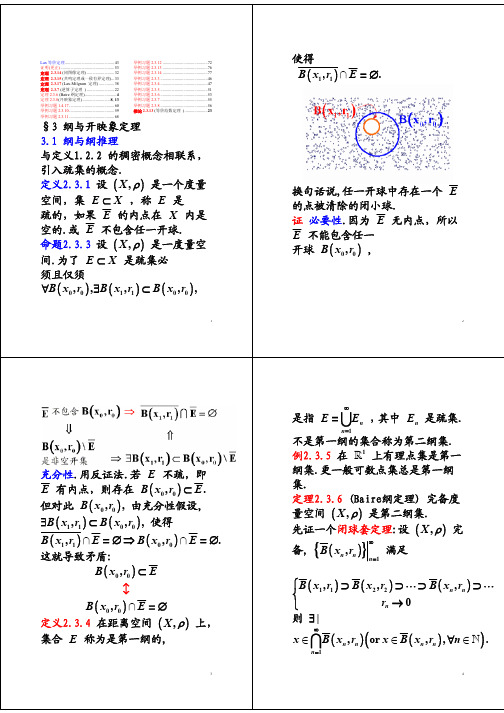 §3 纲与开映象定理
3.1 纲与纲推理
与定义1.2.2 的稠密概念相联系,
引入疏集的概念.
定义2.3.1 设 (X,ρ) 是一个度量
空间, 集 E⊂X , 称 E 是
疏的, 如果 E̅ 的内点在 X 内是
空的.或 E̅ 不包含任一开球.
命题2.3.3 设 (X,ρ) 是一度量空
间.为了 E⊂X 是疏集必
须且仅须
∀B(x₀,r₀),∃B(x₁,r₁)⊂B(x₀,r₀),
使得
B̅(x₁,r₁)∩E̅=∅.
B(x₁,r₁)
B(x₀,r₀)
换句话说,任一开球中存在一个 E̅
的点被清除的闭小球.
证 必要性.因为 E̅ 无内点, 所以
E̅ 不能包含任一
开球 B(x₀,r₀) ,
E̅ 不包含 B(x₀,r₀) ⇒ B̅(x₁,r₁)∩E̅=∅
⇓ ⇑
B(x₀,r₀)\E̅
是非空开集 ⇒ ∃B(x₁,r₁)⊂B(x₀,r₀)\E̅
充分性.用反证法.若 E 不疏, 即
E̅ 有内点, 则存在 B(x₀,r₀)⊂E̅.
但对此 B(x₀,r₀), 由充分性假设,
∃B(x₁,r₁)⊂B(x₀,r₀), 使得
B̅(x₁,r₁)∩E̅=∅⇒B(x₀,r₀)∩E̅=∅.
这就导致矛盾:
B(x₀,r₀)⊂E̅
↕
B(x₀,r₀)∩E̅=∅
定义2.3.4 在距离空间 (X,ρ) 上,
集合 E 称为是第一纲的,
是指 E=⋃_{n=1}^{∞}Eₙ , 其中 Eₙ 是疏集.
不是第一纲的集合称为第二纲集.
例2.3.5 在 ℝ¹ 上有理点集是第一
纲集.更一般可数点集总是第一纲
集.
定理2.3.6 (Baire纲定理) 完备度
量空间 (X,ρ) 是第二纲集.
先证一个闭球套定理:设 (X,ρ) 完
备, {B̅(xₙ,rₙ)}_{n=1}^{∞} 满足
{ B̅(x₁,r₁)⊃B̅(x₂,r₂)⊃⋯⊃B̅(xₙ,rₙ)⊃⋯
rₙ→0
则 ∃|
x∈⋂_{n=1}^{∞}B̅(xₙ,rₙ)(or x∈B̅(xₙ,rₙ),∀n∈ℕ).